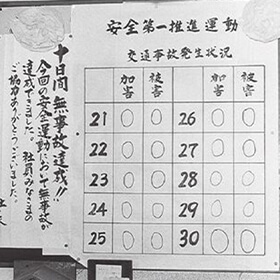 安全第一推進運動
交通事故発生状況
加害 被害 加害 被害
21 ○ ○ 26 ○ ○
22 ○ ○ 27 ○ ○
23 ○ ○ 28 ○ ○
24 ○ ○ 29 ○ ○
25 ○ ○ 30 ○ ○
十日間無事故達成!!
今回の安全運動において無事故が
達成できました。社員みなさまの
ご協力ありがとうございました。